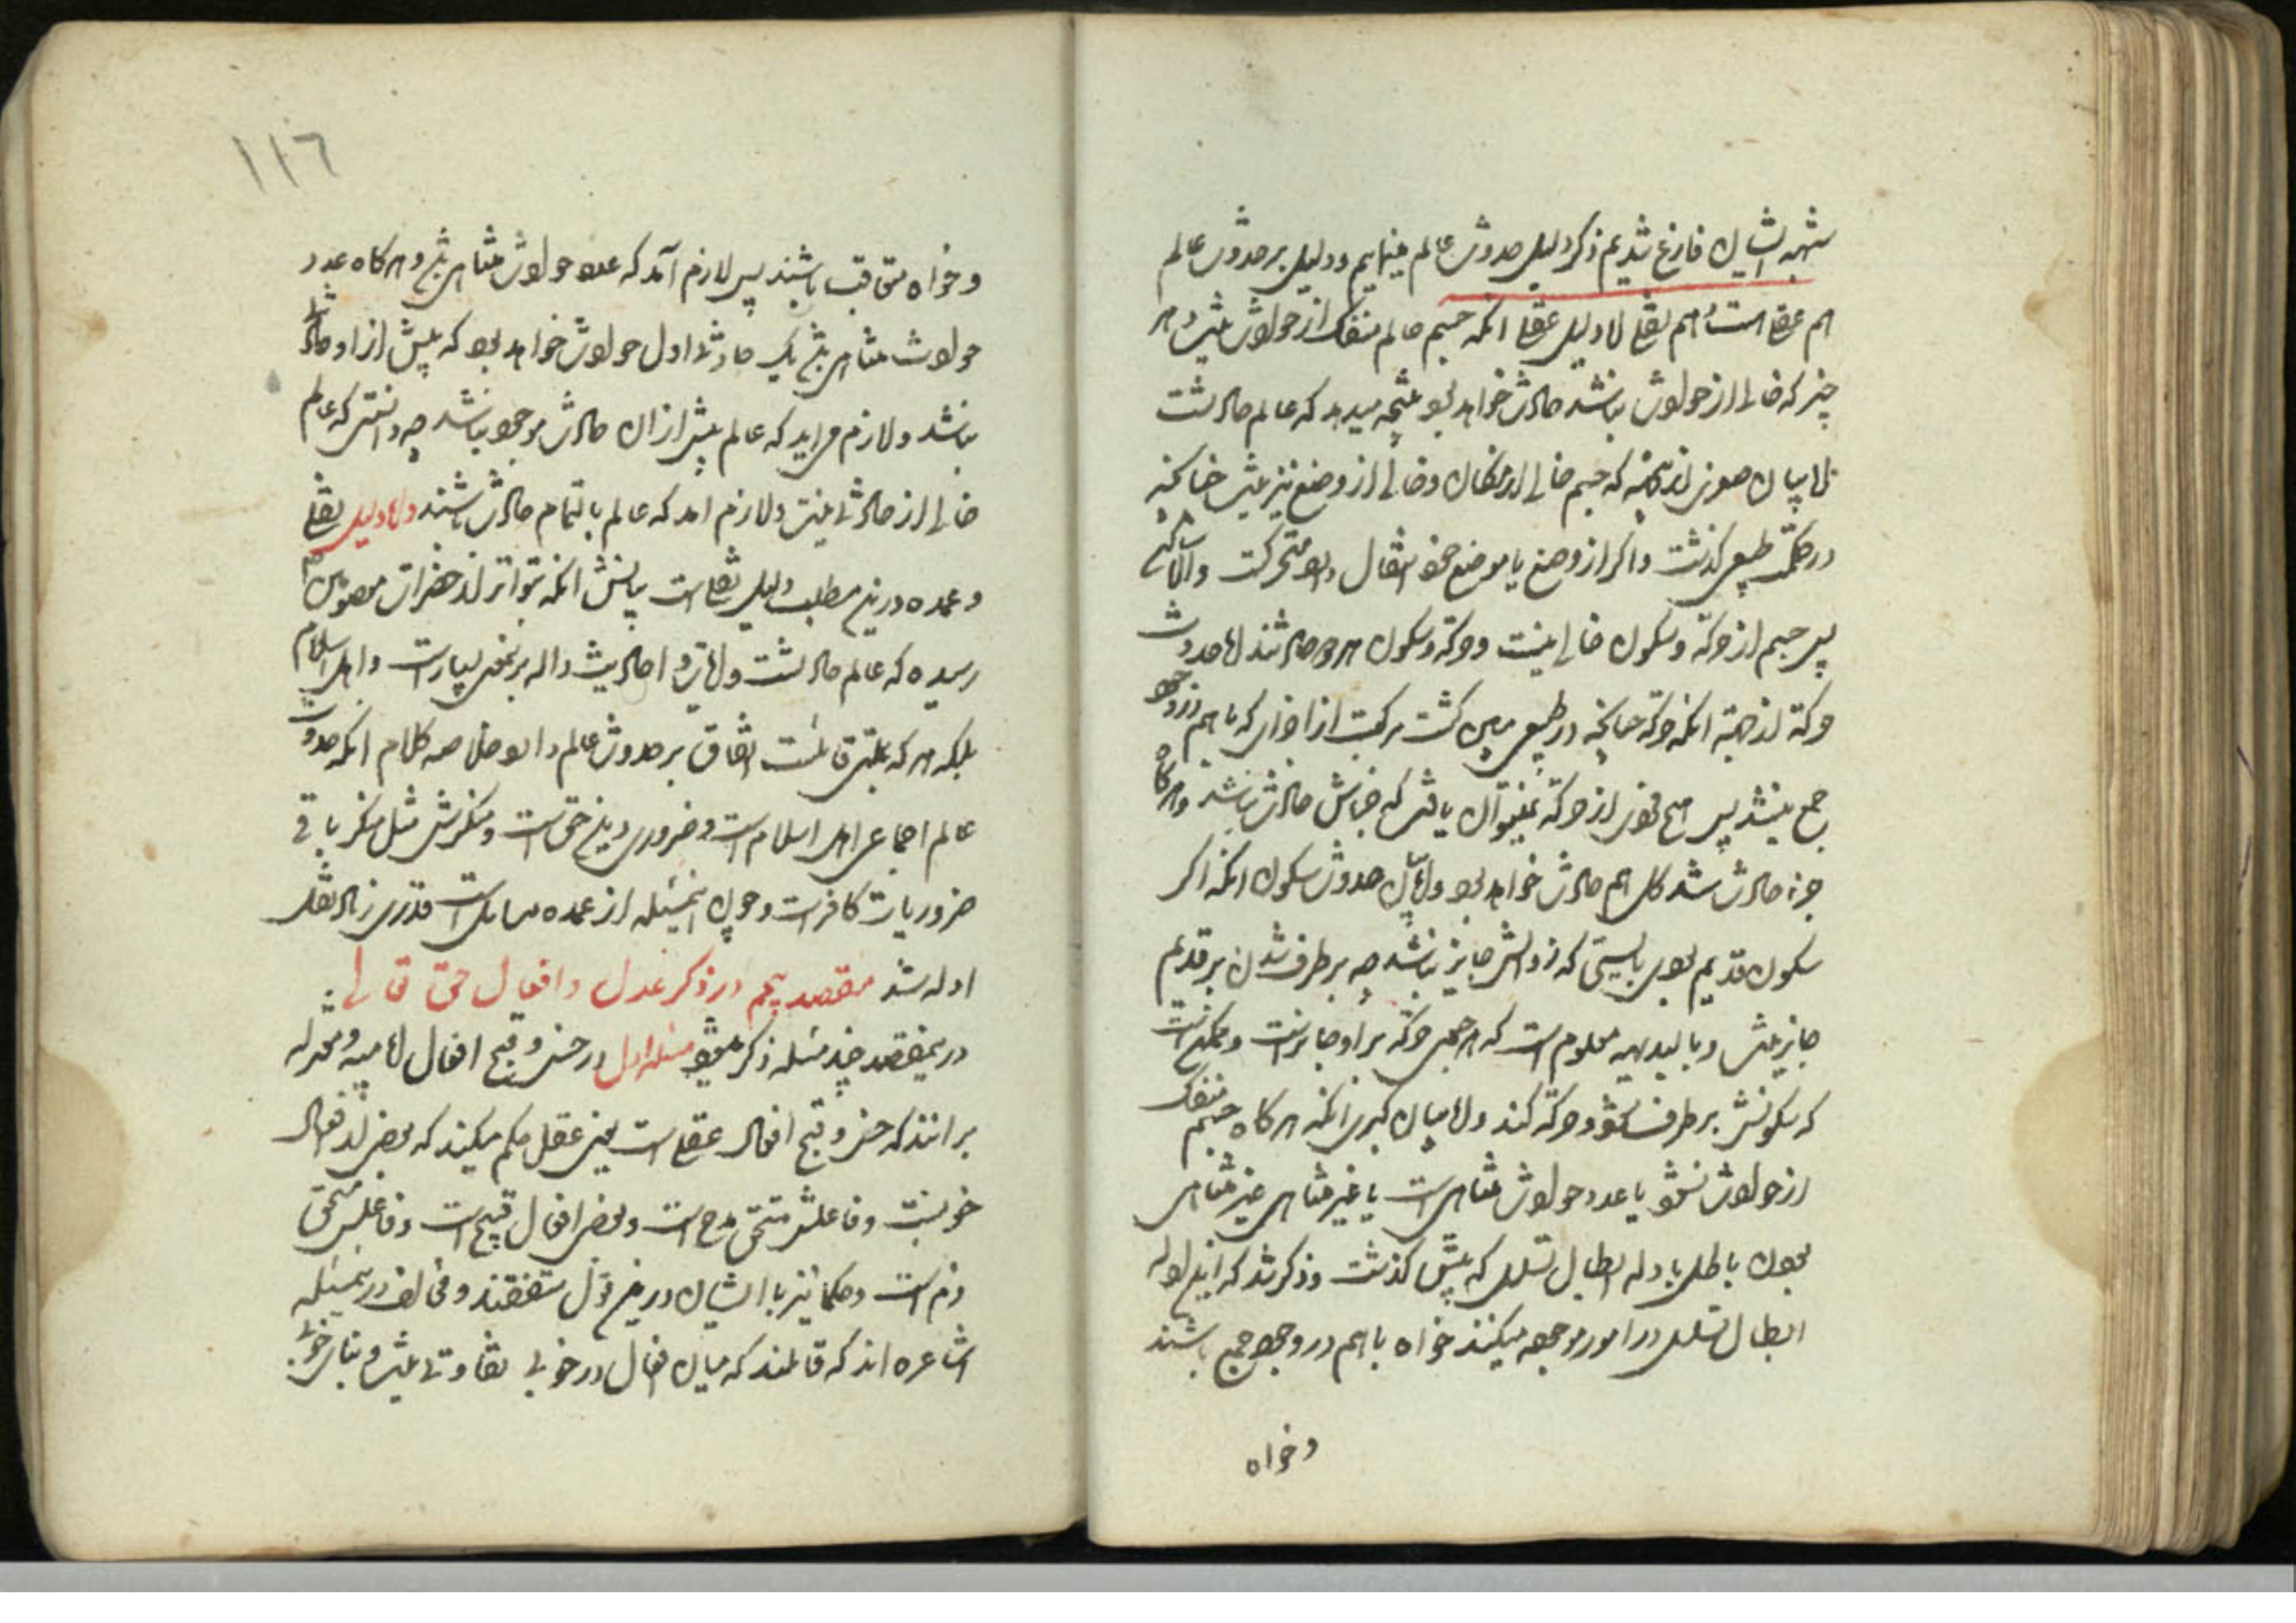 شبهه ایشان فارغ شدیم ذکر دلیل حدوث عالم مینمایم و دلیل بر حدوث عالم
هم عقلی است و هم نقلی اما دلیل عقلی آنکه جسم عالم منفک از حوادث نیست و هر
چیز که خالی از حوادث نباشد حادث خواهد بود نتیجه میدهد که عالم حادثست
اما بیان صغری آنکه جسم خالی از مکان و خالی از وضع نیز نیست چنانچه
در حکمت طبیعی گذشت و اگر از وضع یا موضع خود انتقال دارد متحرکست و الا ساکن
پس جسم از حرکة و سکون خالی نیست و حرکة و سکون هر دو حادثند اما حدوث
حرکة از جهة آنکه حرکة چنانچه در طبیعی مبین گشت مرکبست از اجزای که با هم در وجود
جمع نمیشوند پس هیچ جزوی از حرکة نمیتوان یافت که حادث نباشد و هرگاه
جزء حادث شد کل هم حادث خواهد بود و اما بیان حدوث سکون آنکه اگر
سکون قدیم بودی بایستی که زوالش جایز نباشد چه برطرف شدن بر قدیم
جایز نیست و بالبدیهه معلومست که هر جسمی حرکة بر او جایز است و ممکن است
که سکونش برطرف شود و حرکة کند و اما بیان کبری آنکه هرگاه جسم منفک
از حوادث نشود یا عدد حوادث متناهی است یا غیر متناهی غیر متناهی
بودن باطل بادله ابطال تسلسل که پیش گذشت و ذکر شد که این ادله
ابطال تسلسل در امور موجوده میکنند خواه با هم در وجود جمع باشند
و خواه
١١٦
و خواه متعاقب باشند پس لازم آمد که عدد حوادث متناهی باشد و هرگاه عدد
حوادث متناهی باشد یک حادثه اول حوادث خواهد بود که پیش از او حادثه
نباشد و لازم می‌آید که عالم پیش از آن حادث موجود نباشد چه دانستی که عالم
خالی از حادثه نیست و لازم آمد که عالم بالتمام حادث باشند و اما دلیل نقلی
و عمده درین مطلب دلیل نقلی است بیانش آنکه بتواتر از حضرات معصومین
رسیده که عالم حادثست و آیات و احادیث داله بر نمعنی بسیار است و اهل اسلام
بلکه هر که بملتی قائلست اتفاق بر حدوث عالم دارد و خلاصه کلام آنکه حدوث
عالم اجماعی اهل اسلام است و ضروری دین حق است و منکرش مثل منکر باقی
ضروریات کافر است و چون اینمسئله از عمده مسایل است قدری زیاد نقل
ادله شد مقصد پنجم در ذکر عدل و افعال حق تعالی
درینمقصد چند مسئله ذکر میشود مسئله اول در حسن و قبح افعال امامیه و معتزله
برانند که حسن و قبح افعال عقلی است یعنی عقل حکم میکند که بعضی از افعال
خوبست و فاعلش مستحق مدح است و بعضی افعال قبیح است و فاعلش مستحق
ذم است و حکما نیز با ایشان درین قول متفقند و مخالف درینمسئله
اشاعره اند که قائلند که میان افعال در خوبی تفاوتی نیست و بنای خوبی